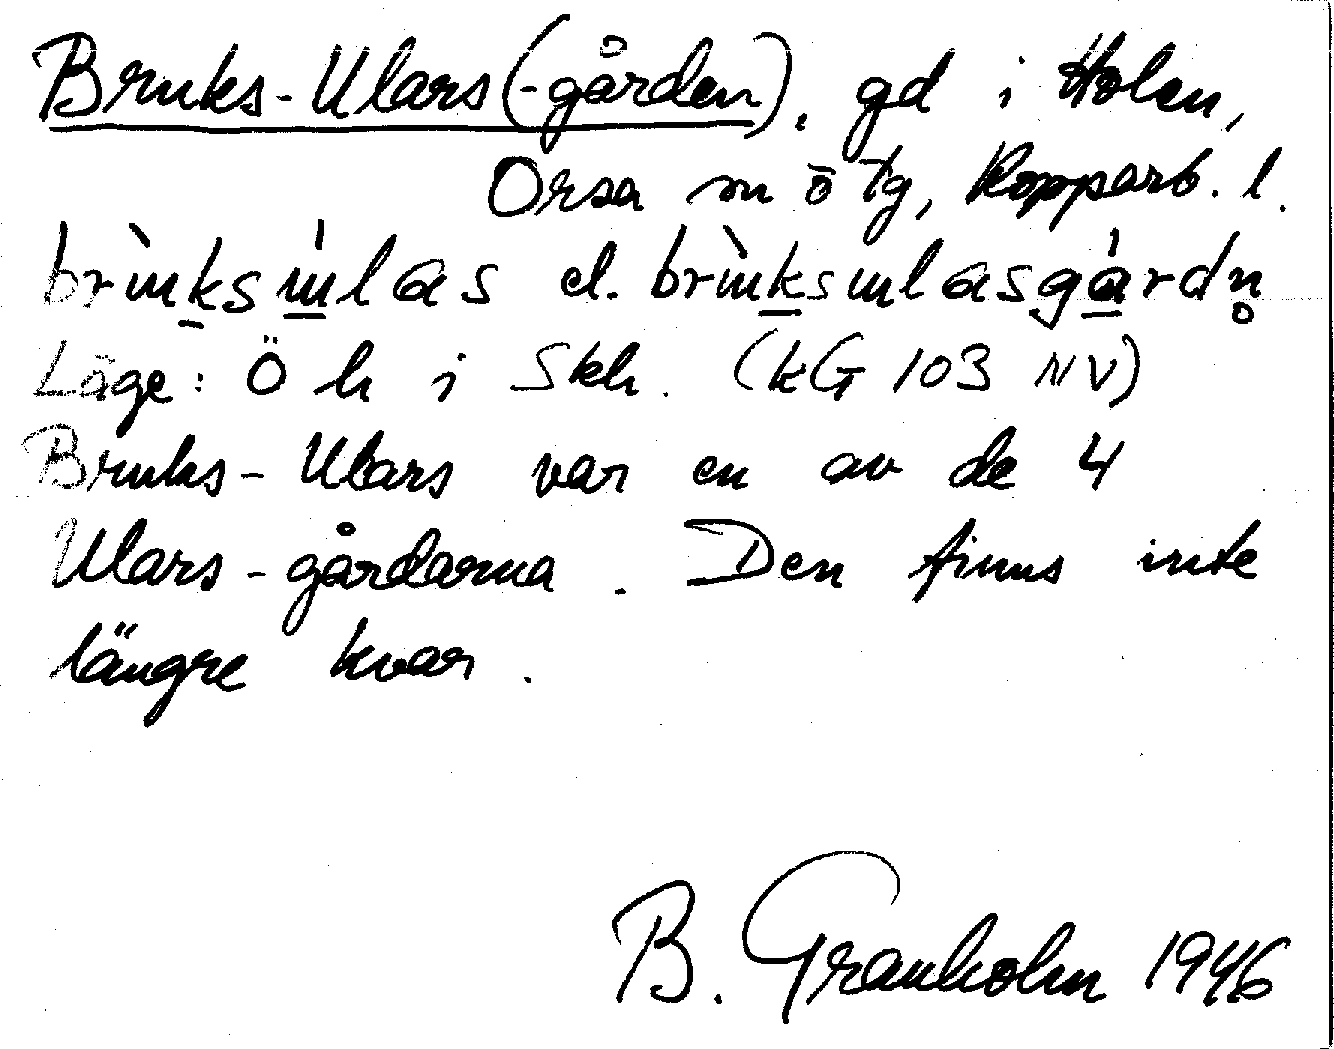 Bruks-Ulars(-gården), gd i Holen,
Orsa sn ō tg, Kopparb. l.
el.
Läge: Ö h i Skh. (kG 103 NV)
Bruks-Ulars var en av de 4
Ulars-gårdarna. Den finns inte
längre kvar.
B. Granholm 1946